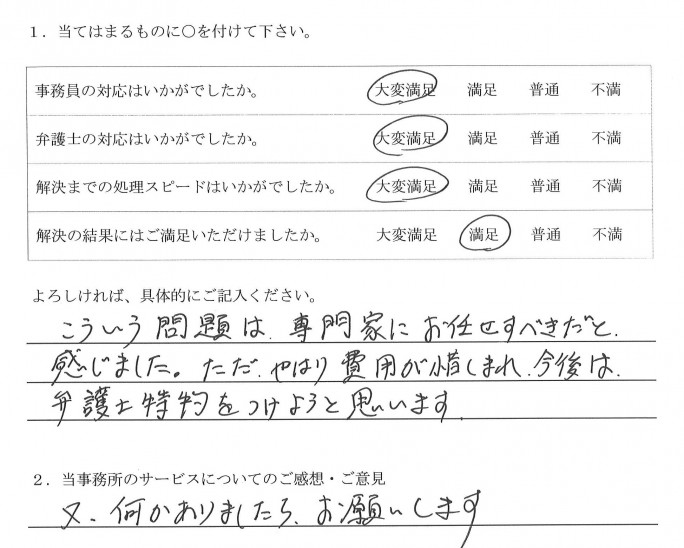 1．当てはまるものに○を付けて下さい。
事務員の対応はいかがでしたか。 大変満足 満足 普通 不満
弁護士の対応はいかがでしたか。 大変満足 満足 普通 不満
解決までの処理スピードはいかがでしたか。 大変満足 満足 普通 不満
解決の結果にはご満足いただけましたか。 大変満足 満足 普通 不満
よろしければ、具体的にご記入ください。
こういう問題は、専門家にお任せすべきだと、
感じました。ただ、やはり費用が惜しまれ、今後は、
弁護士特約をつけようと思います。
2．当事務所のサービスについてのご感想・ご意見
又、何かありましたら、お願いします